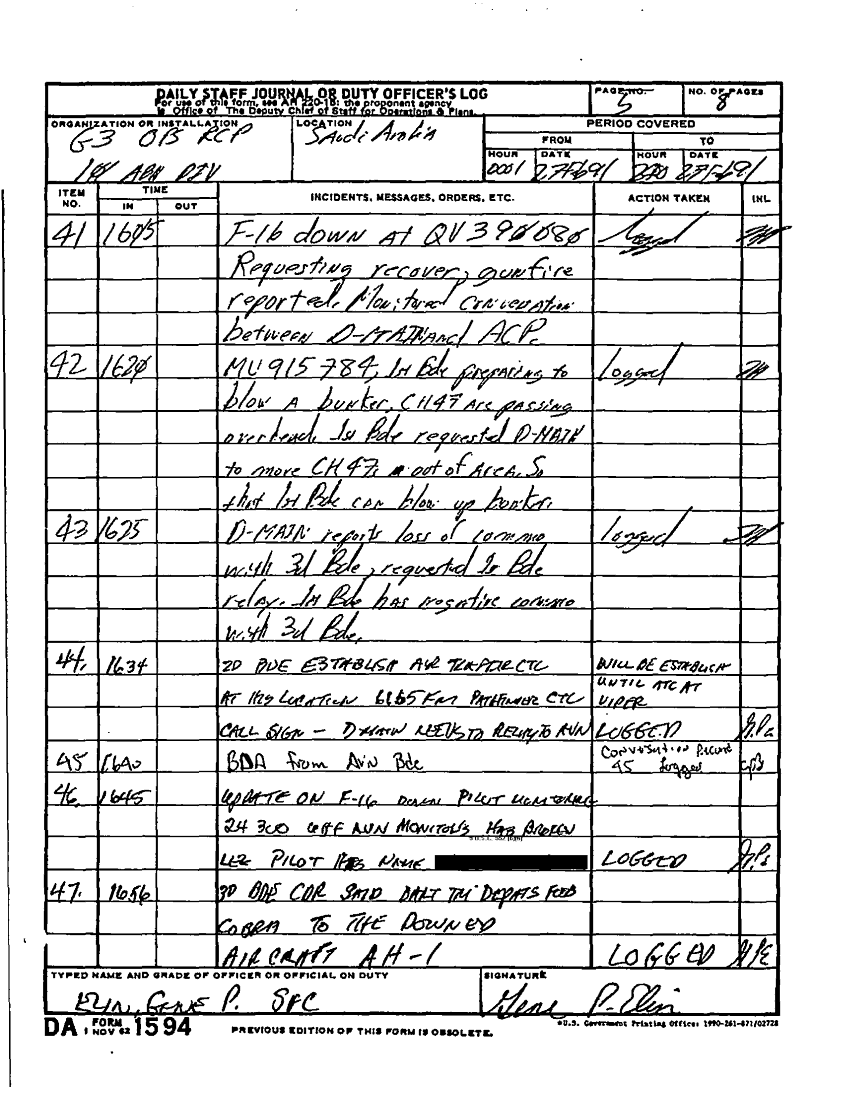 DAILY STAFF JOURNAL OR DUTY OFFICER'S LOG
For use of this form, see AR 220-15; the proponent agency
is Office of The Deputy Chief of Staff for Operations & Plans.
PAGE NO.
5
NO. OF PAGES
8
ORGANIZATION OR INSTALLATION
G3 OPS
LOCATION
Saudi Arabia
PERIOD COVERED
FROM
TO
HOUR DATE HOUR DATE
0001 27Feb91 27Feb91
ABN DIV
ITEM NO.
TIME
IN OUT
INCIDENTS, MESSAGES, ORDERS, ETC.
ACTION TAKEN
INL
41 1605 F-16 down AT QV390080
Requesting recover, gunfire
reported. Monitored conversation
between D-MAIN and ACP.
42 1620 MU915784, 1st Bde preparing to logged
blow A bunker, CH47 Are passing
overhead. 1st Bde requested D-MAIN
to move CH47s out of Area, So
that 1st Bde can blow up bunker.
43 1625 D-MAIN reports loss of commo logged
with 3d Bde, requested 1st Bde
relay. 1st Bde has negative commo
with 3d Bde.
44. 1634 2D BDE ESTABLISH AIR CTC WILL BE ESTABLISH
AT LOCATION PATHFINDER CTC UNTIL ATC AT
VIPER
CALL SIGN - DMAIN NEEDS TO RELAY TO AVN LOGGED
45 1640 BDA from Avn Bde Conversation Record
45 logged
46. 1645 UPDATE ON F-16 DOWN PILOT MONITORING
AVN MONITORS HAS BROKEN
LEG PILOT HAS NAME LOGGED
47. 1656 3D BDE CDR SAID
COBRA TO THE DOWNED
AIRCRAFT AH-1 LOGGED
TYPED NAME AND GRADE OF OFFICER OR OFFICIAL ON DUTY
ELIN, GENE P. SFC
SIGNATURE
Gene P. Elin
DA FORM 1594
1 NOV 62
PREVIOUS EDITION OF THIS FORM IS OBSOLETE.
*U.S. Government Printing Office: 1990-261-871/02728